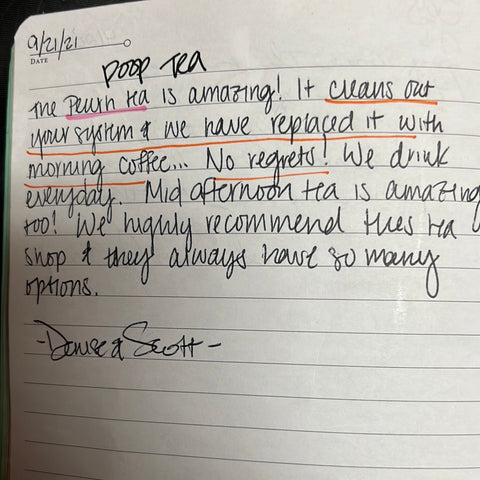 9/21/21
DATE
poop Tea
The Peurh tea is amazing! It cleans out
your system & we have replaced it with
morning coffee... No regrets! We drink
everyday. Mid afternoon tea is amazing
too! We highly recommend this tea
shop & they always have so many
options.
-Denise & Scott-